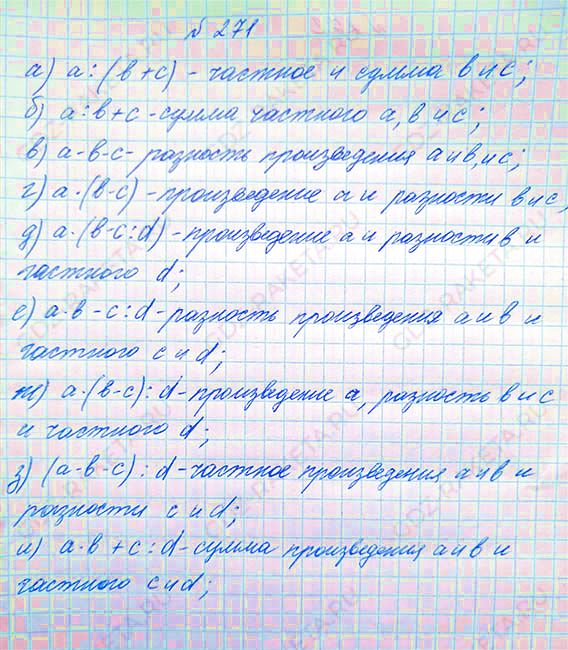 № 271
а) а : (в + с) - частное и сумма в и с;
б) а : в + с - сумма частного а, в и с;
в) а - в - с - разность произведения а и в, и с;
г) а · (в - с) - произведение а и разности в и с;
д) а · (в - с : d) - произведение а и разности в и
частного d;
е) а · в - с : d - разность произведения а и в и
частного с и d;
ж) а · (в - с) : d - произведение а, разность в и с
и частного d;
з) (а - в - с) : d - частное произведения а и в и
разности с и d;
и) а · в + с : d - сумма произведения а и в и
частного с и d;
GDZ-RAKETA.RU